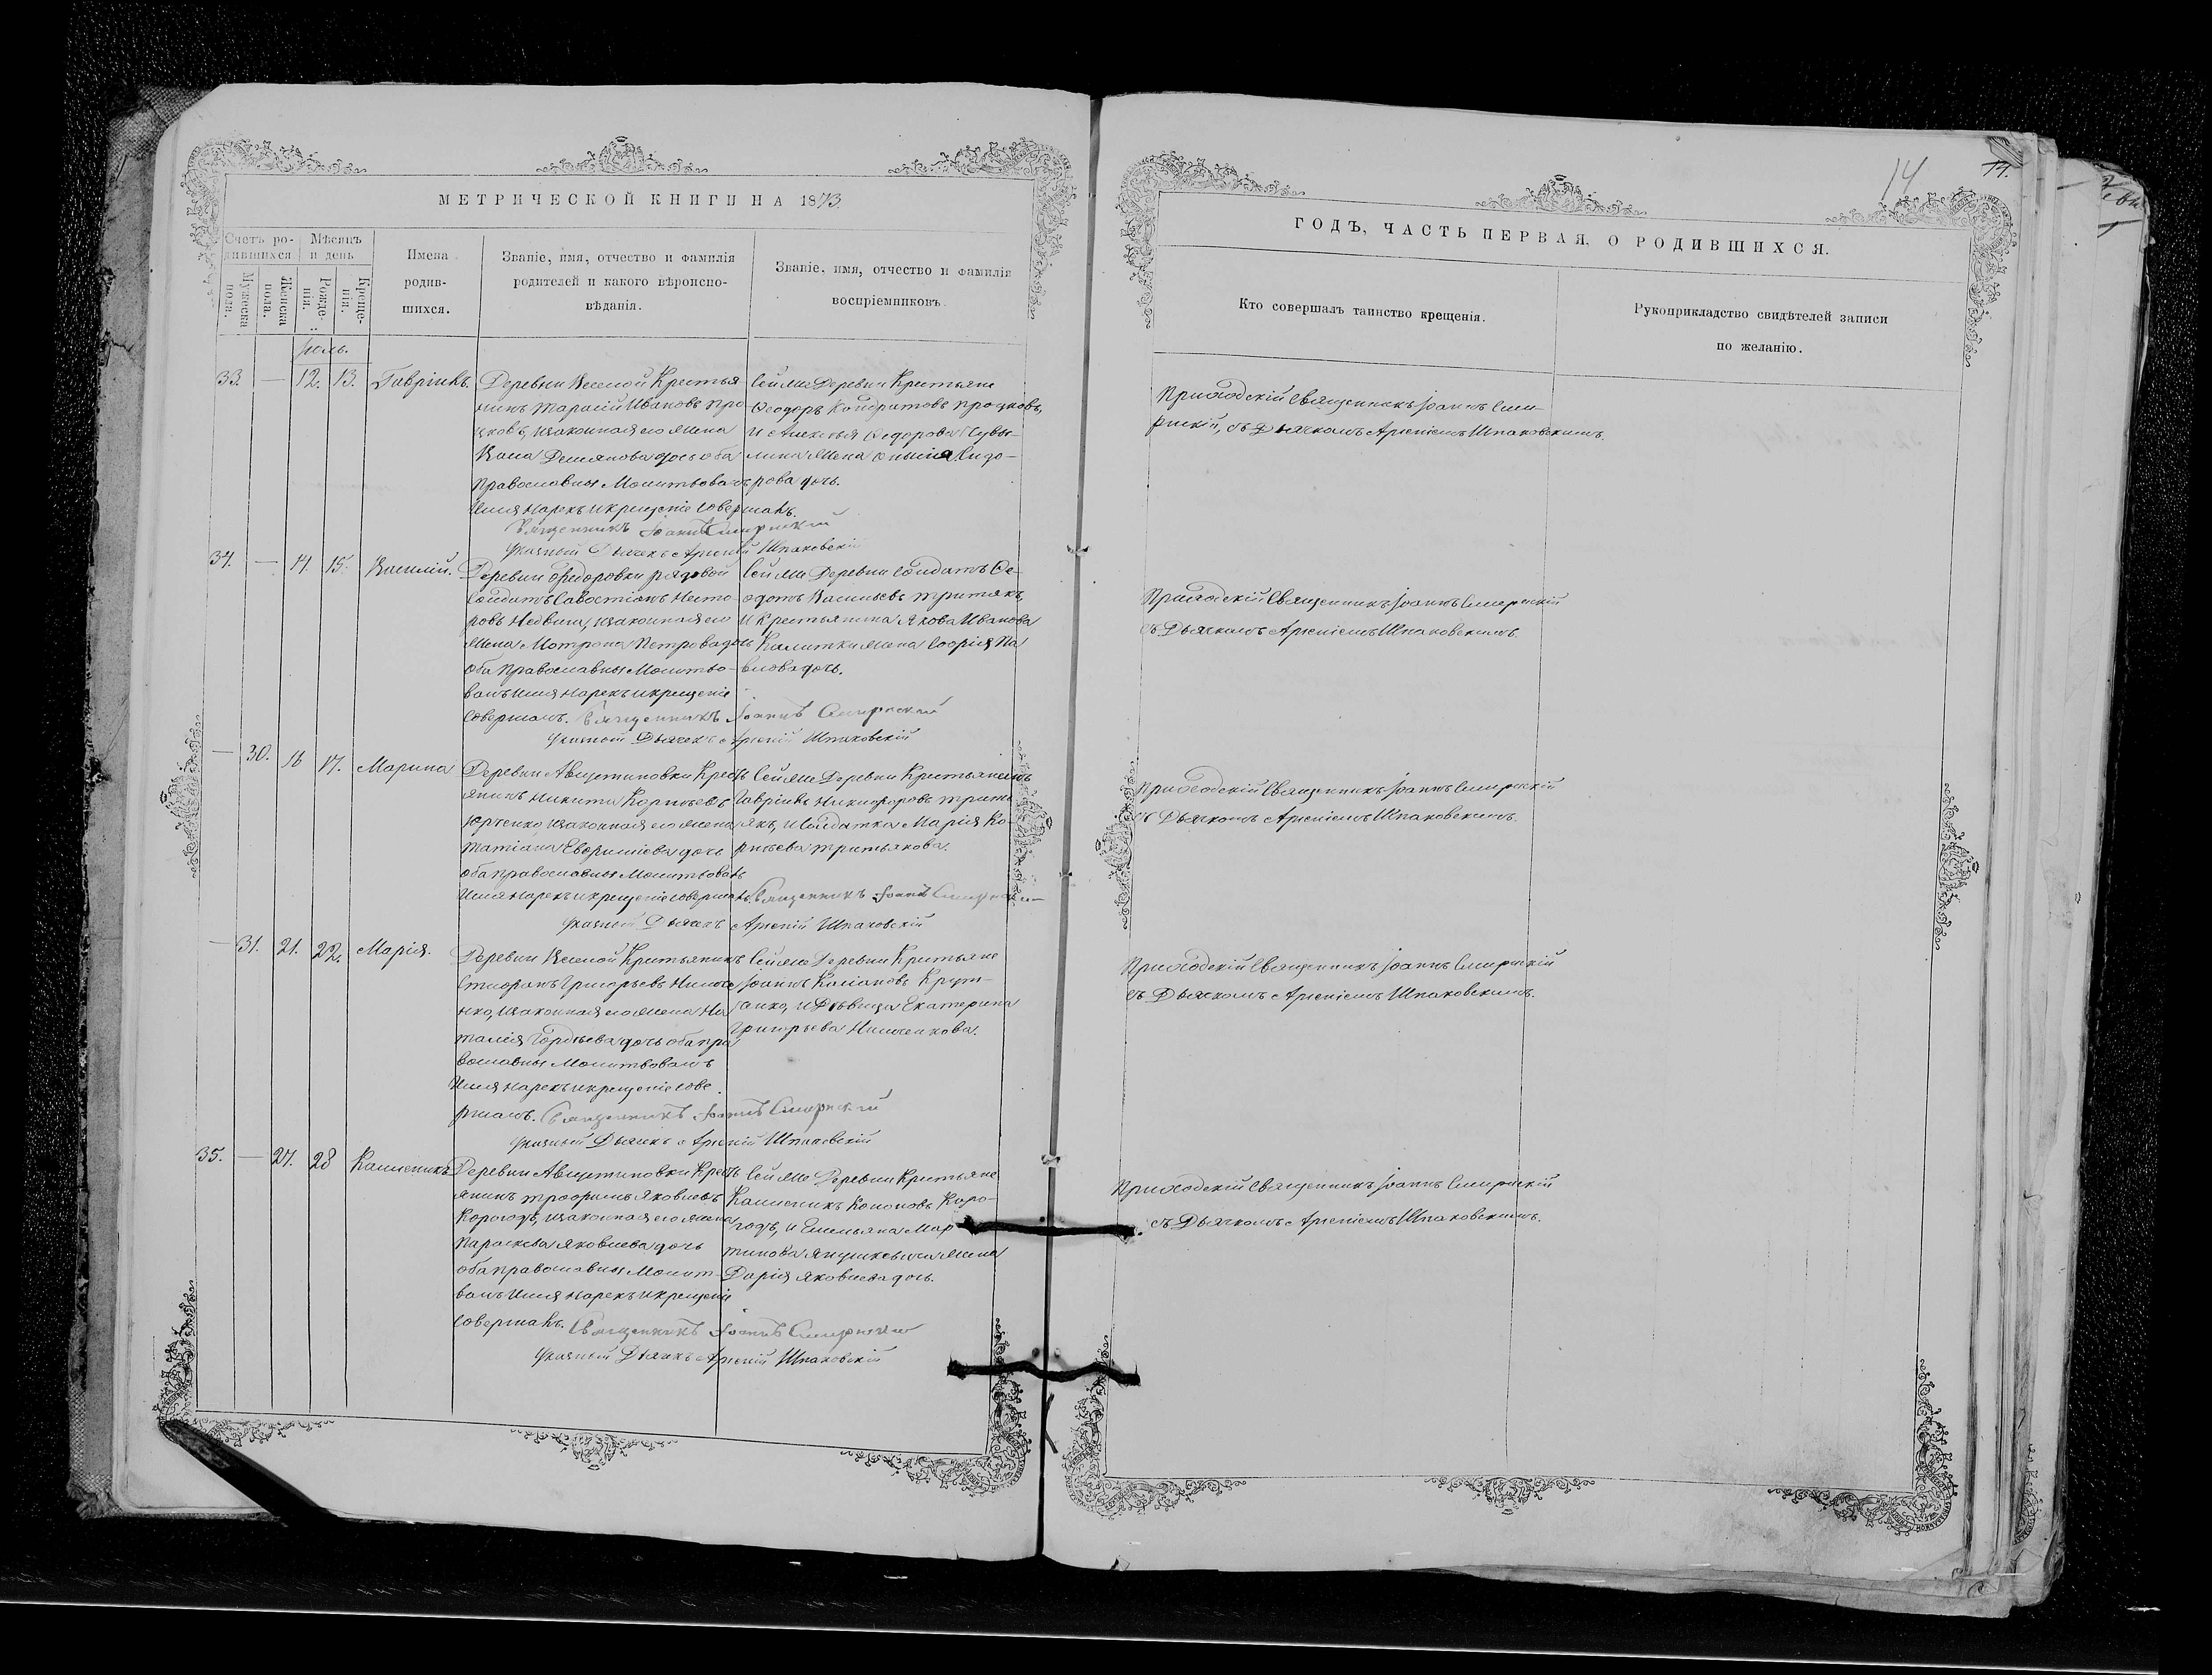 МЕТРИЧЕСКОЙ КНИГИ НА 1873.
Счетъ ро-
дившихся
Мѣсяцъ
и день
Мужеска
пола.
Женска
пола.
Рожде-
нія.
Креще-
нія.
Имена
родив-
шихся.
Званіе, имя, отчество и фамилія
родителей и какого вѣроиспо-
вѣданія.
Званіе, имя, отчество и фамилія
воспріемниковъ.
Іюль.
33. — 12. 13. Гавріилъ.
Деревни Веселой Крестья
нинъ Тарасій Ивановъ Про
цковъ, изаконная его жена
Васса Демянова дочь оба
Православны Молитвовалъ
Имя нарекъ и крещеніе совершалъ.
Священникъ Іоаннъ Смирнскій
Указный Дьячекъ Арсеній Шпаковскій
Сей же Деревни Крестьяне
Ѳеодоръ Кондратовъ Процковъ,
и Алексѣя Ѳедорова
жена Сидо-
рова дочь.
34. — 14. 15. Василій.
Деревни Ѳедоровки рядовой
Солдатъ Савостіанъ Несто-
ровъ Недбига, изаконная его
жена Мотрона Петрова дочь
оба Православны Молитво-
валъ Имя нарекъ и крещеніе
совершалъ. Священникъ Іоаннъ Смирнскій
Указный Дьячекъ Арсеній Шпаковскій
Сей же Деревни Солдатъ Ѳе-
одотъ Васильевъ Третьякъ,
и Крестьянина Якова Иванова
Калитки жена Софія Па
влова дочь.
— 30. 16 17. Марина
Деревни Августиновки Крестъ
янинъ Никита Корнѣевъ
Юрченко, изаконная его жена
Татіана Евфиміева дочь
оба православны Молитвовалъ
Имя нарекъ и крещеніе совершалъ. Священникъ Іоаннъ Смирнскій
Указный Дьячекъ Арсеній Шпаковскій
Сей же Деревни Крестьянинъ
Гавріилъ Никифоровъ Треть
якъ, и Солдатка Марія Ко-
рнѣева Третьякова.
— 31. 21. 22. Марія.
Деревни Веселой Крестьянинъ
Стефанъ Григорьевъ Ниниче
нко, изаконная его жена На
талія Гордѣева дочь оба пра
вославны Молитвовалъ
Имя нарекъ и крещеніе сове
ршалъ. Священникъ Іоаннъ Смирнскій
Указный Дьячекъ Арсеній Шпаковскій
Сей же Деревни Крестьяне
Іоаннъ Касіановъ
и Дѣвица Екатерина
Григорьева
35. — 27. 28 Каленикъ
Деревни Августиновки Крестъ
янинъ Трофимъ Яковлевъ
Корогодъ, изаконная его жена
Параскева Яковлева дочь
оба православны Молит-
валъ Имя нарекъ и крещеніе
совершалъ. Священникъ Іоаннъ Смирнскій
Указный Дьячекъ Арсеній Шпаковскій
Сей же Деревни Крестьяне
Каленикъ Кононовъ Коро-
годъ, и Емельяна Мар
тинова жена
Дарія Яковлева дочь.
14
14.
ГОДЪ, ЧАСТЬ ПЕРВАЯ, О РОДИВШИХСЯ.
Кто совершалъ таинство крещенія.
Рукоприкладство свидѣтелей записи
по желанію.
Приходскій Священникъ Іоаннъ Сми-
рнскій, съ Дьячкомъ Арсеніемъ Шпаковскимъ.
Приходскій Священникъ Іоаннъ Смирнскій
съ Дьячкомъ Арсеніемъ Шпаковскимъ.
Приходскій Священникъ Іоаннъ Смирнскій
съ Дьячкомъ Арсеніемъ Шпаковскимъ.
Приходскій Священникъ Іоаннъ Смирнскій
съ Дьячкомъ Арсеніемъ Шпаковскимъ.
Приходскій Священникъ Іоаннъ Смирнскій
съ Дьячкомъ Арсеніемъ Шпаковскимъ.